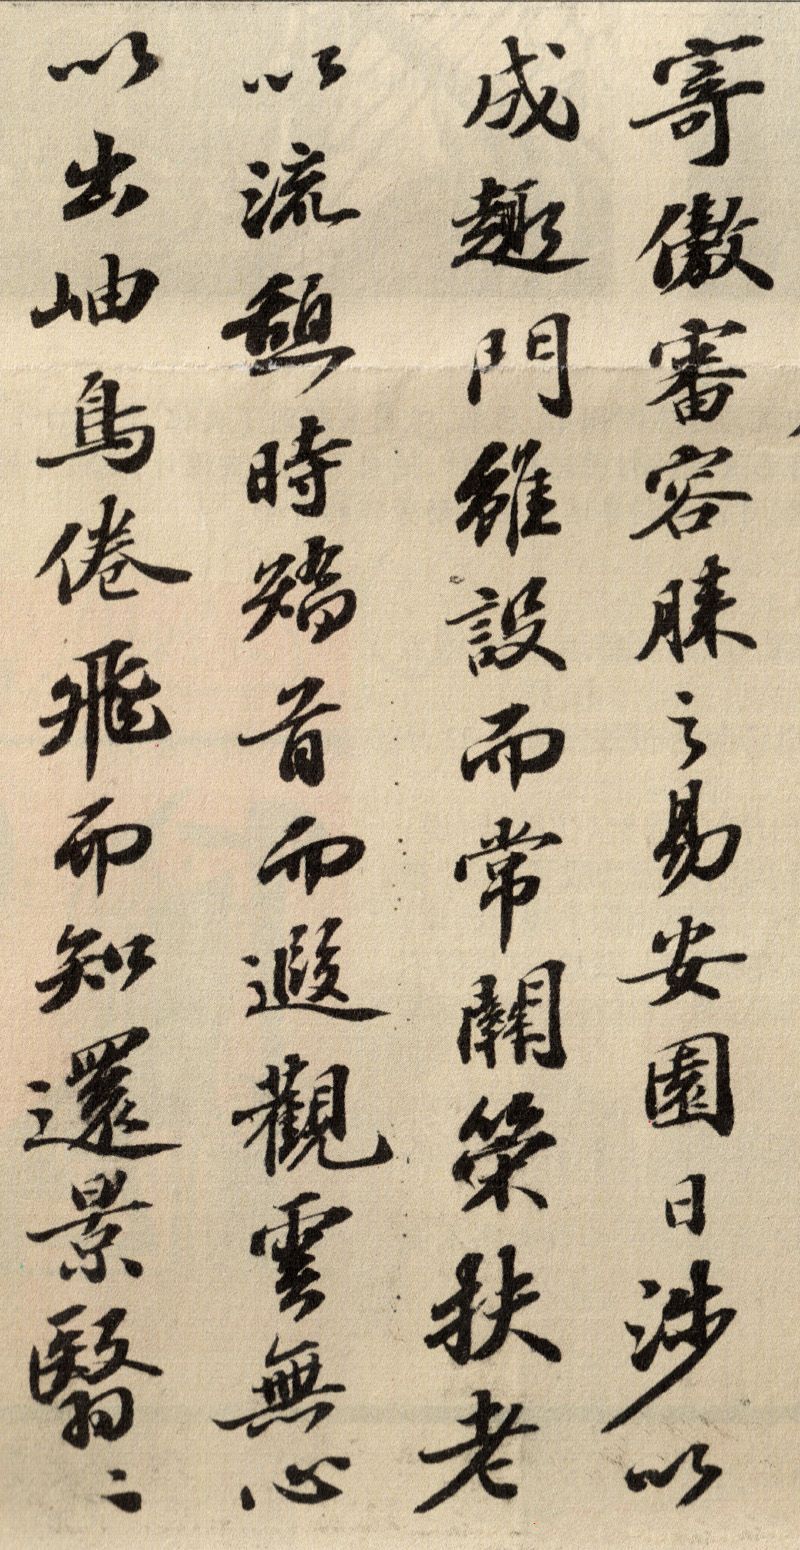 寄傲審容膝之易安園日涉以
成趣門雖設而常關策扶老
以流憩時矯首而遐觀雲無心
以出岫鳥倦飛而知還景翳〻